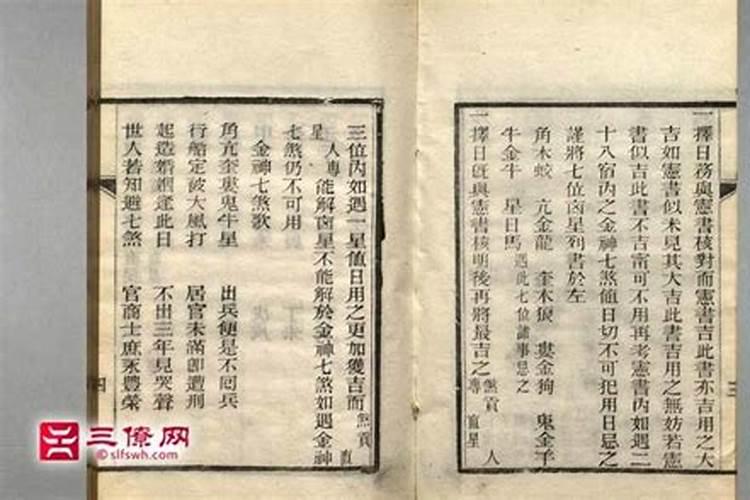 一擇日務與憲書核對而憲書吉此書亦吉用之大
吉如憲書似未見其大吉此書吉用之無妨若憲
書似吉此書不吉甯可不用再考憲書內如遇二
十八宿內之金神七煞值日切不可犯用日忌之
謹將七位凶星列書於左
角木蛟 亢金龍 奎木狼 婁金狗 鬼金羊
牛金牛 星日馬 遇此七位諸事忌之
一擇日旣與憲書核明後再將最吉之 煞貢 專 直星 人
三位內如遇一星値日用之更加獲吉而 煞貢 直
星 人專 能解凶星不能解於金神七煞如遇金神
七煞仍不可用
金神七煞歌
角亢奎婁鬼牛星 出兵便是不囘兵
行船定被大風打 居官未滿卽遭刑
起造婚姻逢此日 不出三年見哭聲
世人若知避七煞 官商士庶永豐榮
三
四
三僚网
©slfswh.com